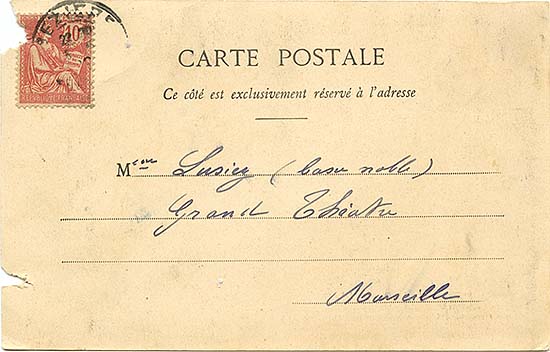 BEZIERS
10
RÉPUBLIQUE FRANÇAISE
CARTE POSTALE
Ce côté est exclusivement réservé à l'adresse
M
(basse noble)
Grand Théatre
Marseille